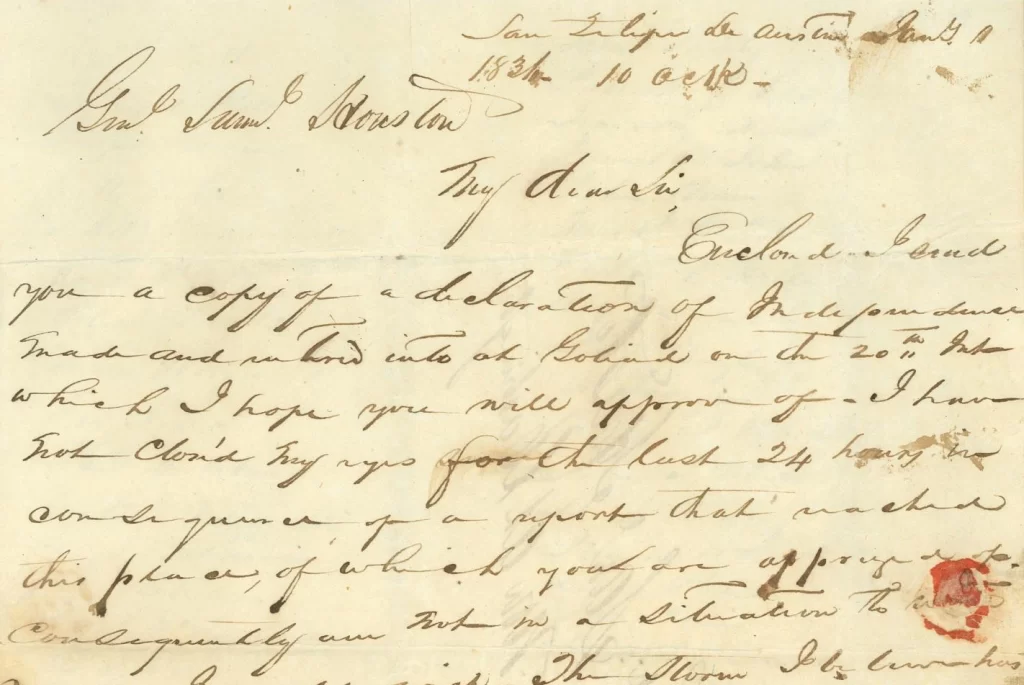 San Felipe De Austin Jany 1
1836 10 oclk -
Genl. Saml. Houston
My dear Sir,
Enclosed I send
you a copy of a declaration of Independence
made and entered into at Goliad on the 20th Inst
which I hope you will approve of - I have
not clos'd my eyes for the last 24 hours in
consequence of a report that reached
this place, of which you are apprized of.
Consequently am not in a situation to write
The storm I believe has